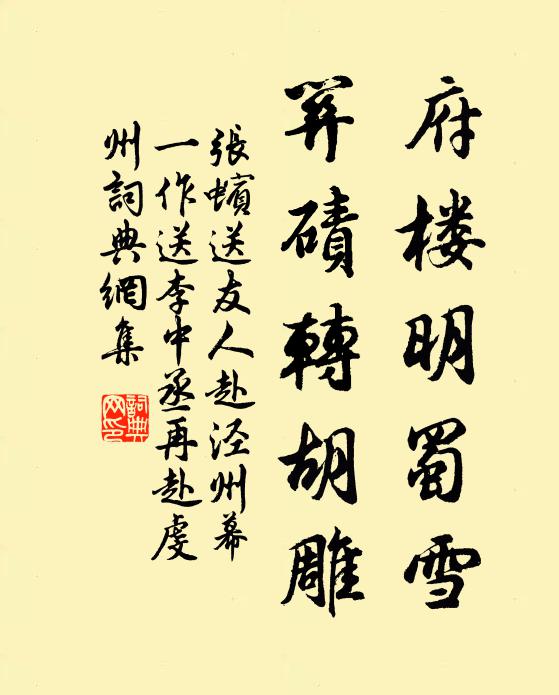 府楼明蜀雪
關磧轉胡雕
張蠙送友人赴泾州幕
一作送李中丞再赴虔
州詞典網集
詞典
网印